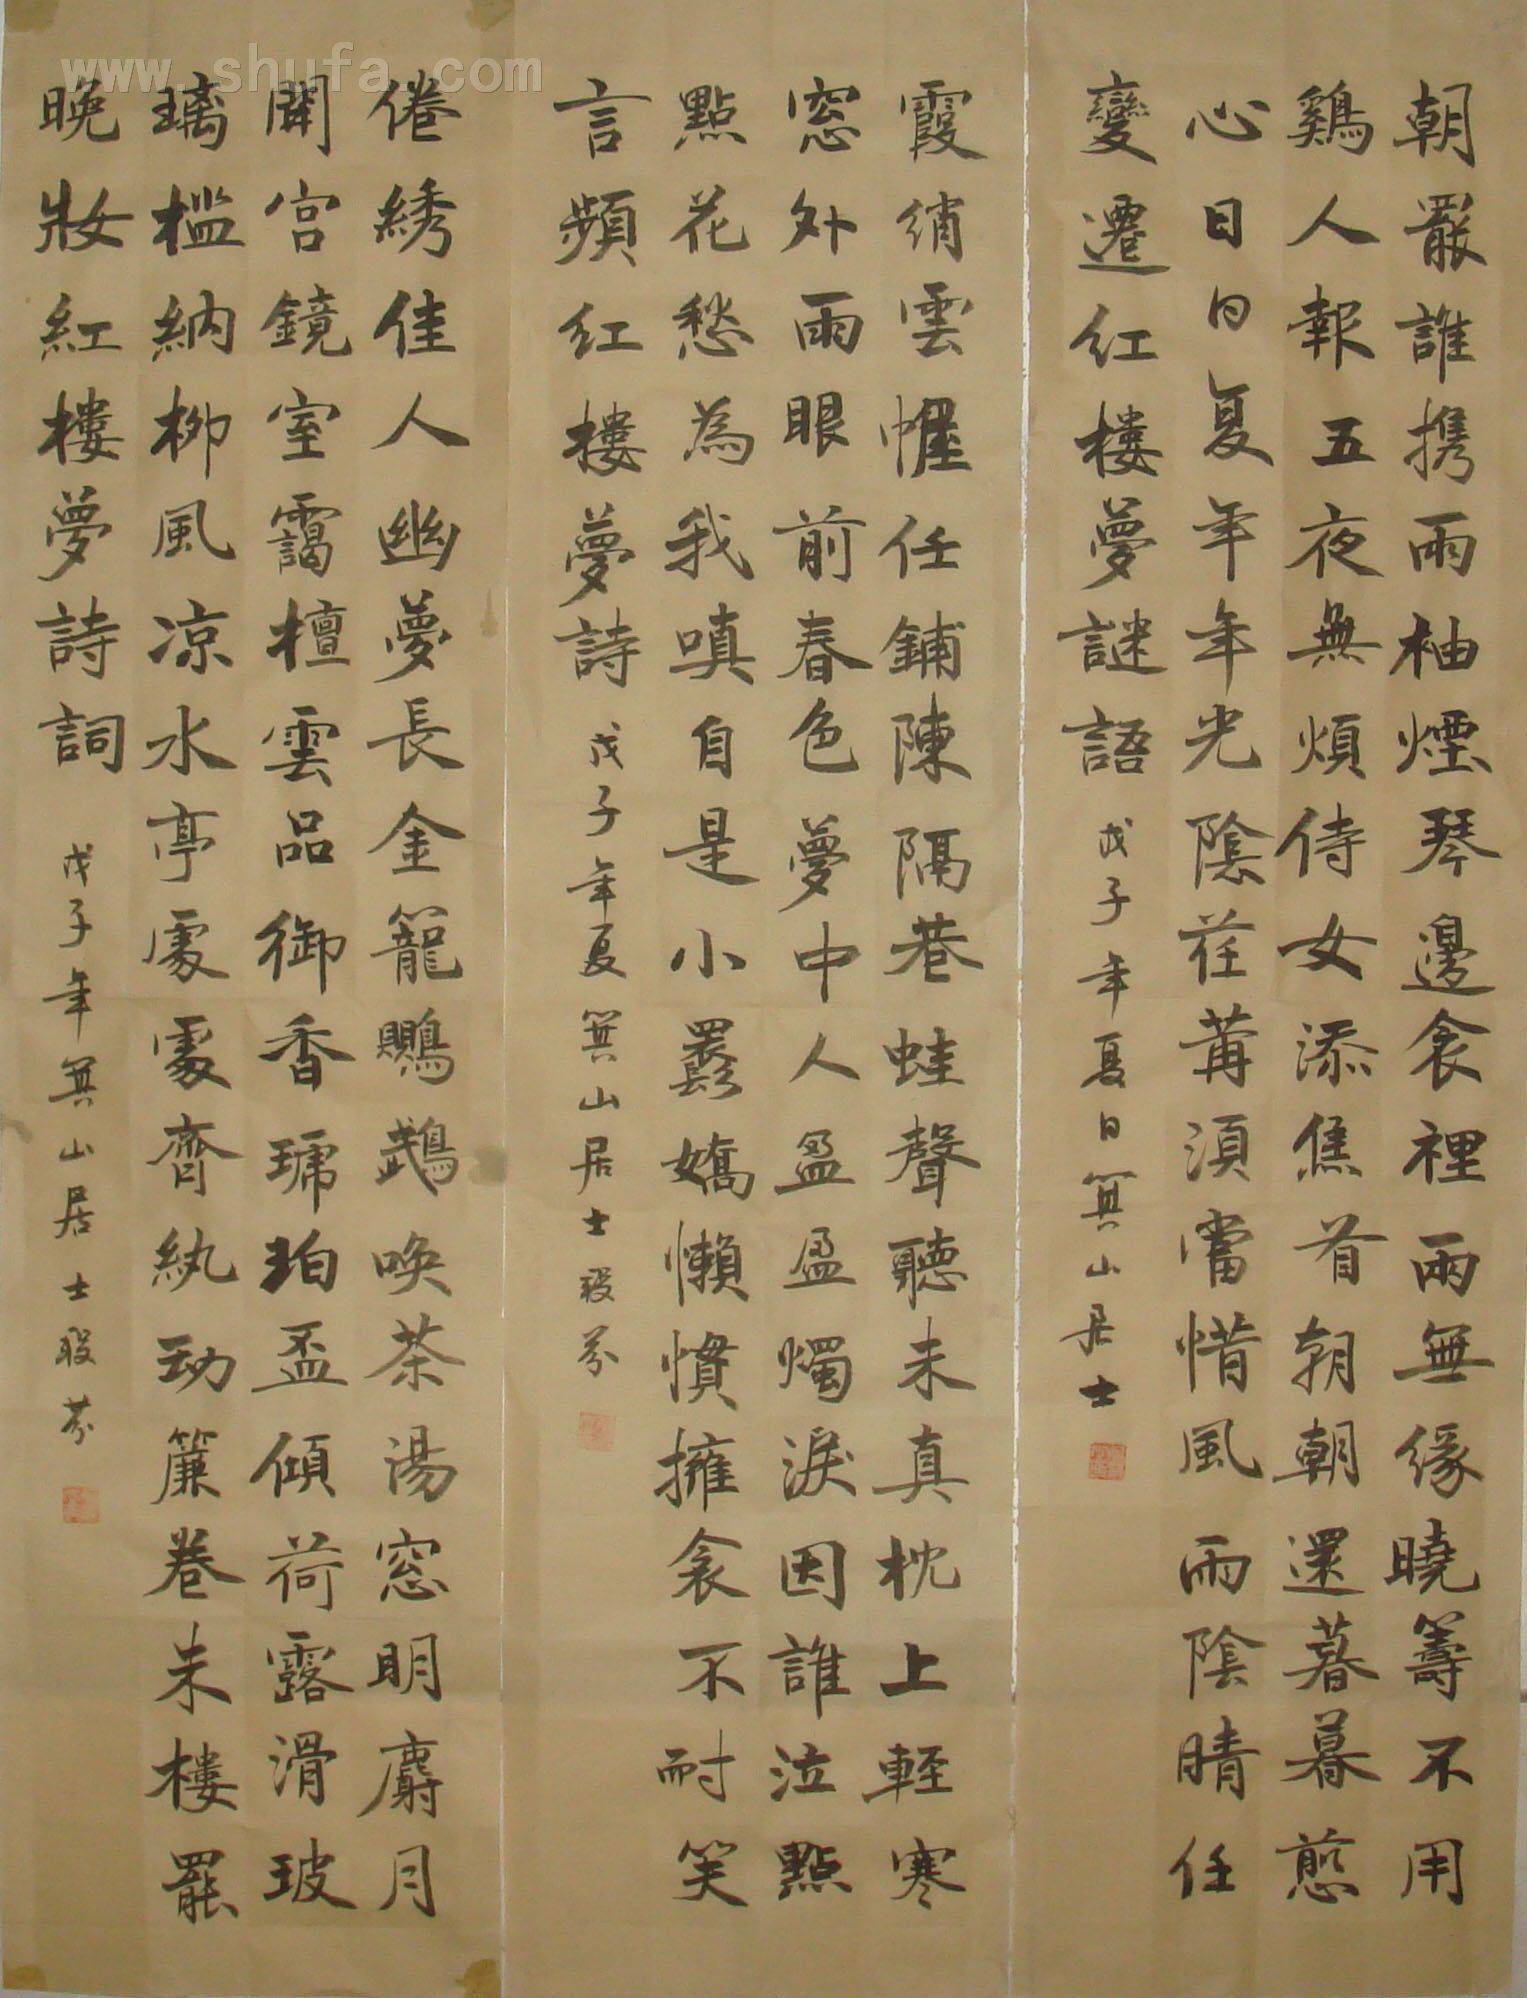 www.shufa.com
朝罷誰携兩袖煙琴邊衾裡兩無緣曉籌不用
鷄人報五夜無煩侍女添焦首朝朝還暮暮煎
心日日复年年光陰荏苒須當惜風雨陰晴任
變遷红樓夢謎語 戊子年夏日箕山居士
霞綃雲幄任鋪陳隔巷蛙聲聽未真枕上輕寒
窓外雨眼前春色夢中人盈盈燭淚因誰泣點
點花愁為我嗔自是小鬟嬌懶慣擁衾不耐笑
言頻红樓夢詩 戊子年夏箕山居士段芬
倦綉佳人幽夢長金籠鸚鵡唤茶湯窓明麝月
開宫鏡室靄檀雲品御香琥珀盃傾荷露滑玻
璃檻納柳風凉水亭處處齊紈动簾卷朱樓罷
晚妝紅樓夢詩詞 戊子年箕山居士段芬